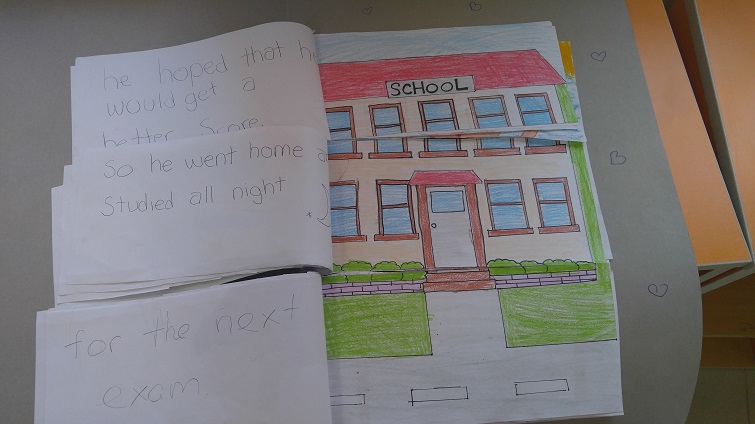 he hoped that
would get a
better Score.
So he went home
Studied all night
for the next
exam.
SCHOOL